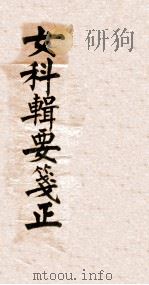 研狗
女科輯要箋正
mtoou.info